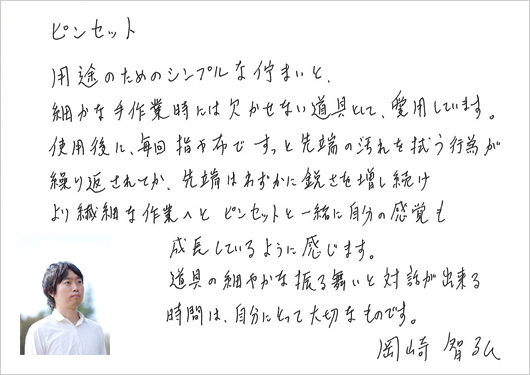 ピンセット
用途のためのシンプルな佇まいと、
細かな手作業時には欠かせない道具として、愛用しています。
使用後に、毎回指や布ですっと先端の汚れを拭う行為が
繰り返されてか、先端はわずかに鋭さを増し続け
より繊細な作業へと ピンセットと一緒に自分の感覚も
成長しているように感じます。
道具の細やかな振る舞いと対話が出来る
時間は、自分にとって大切なものです。
岡崎 智弘